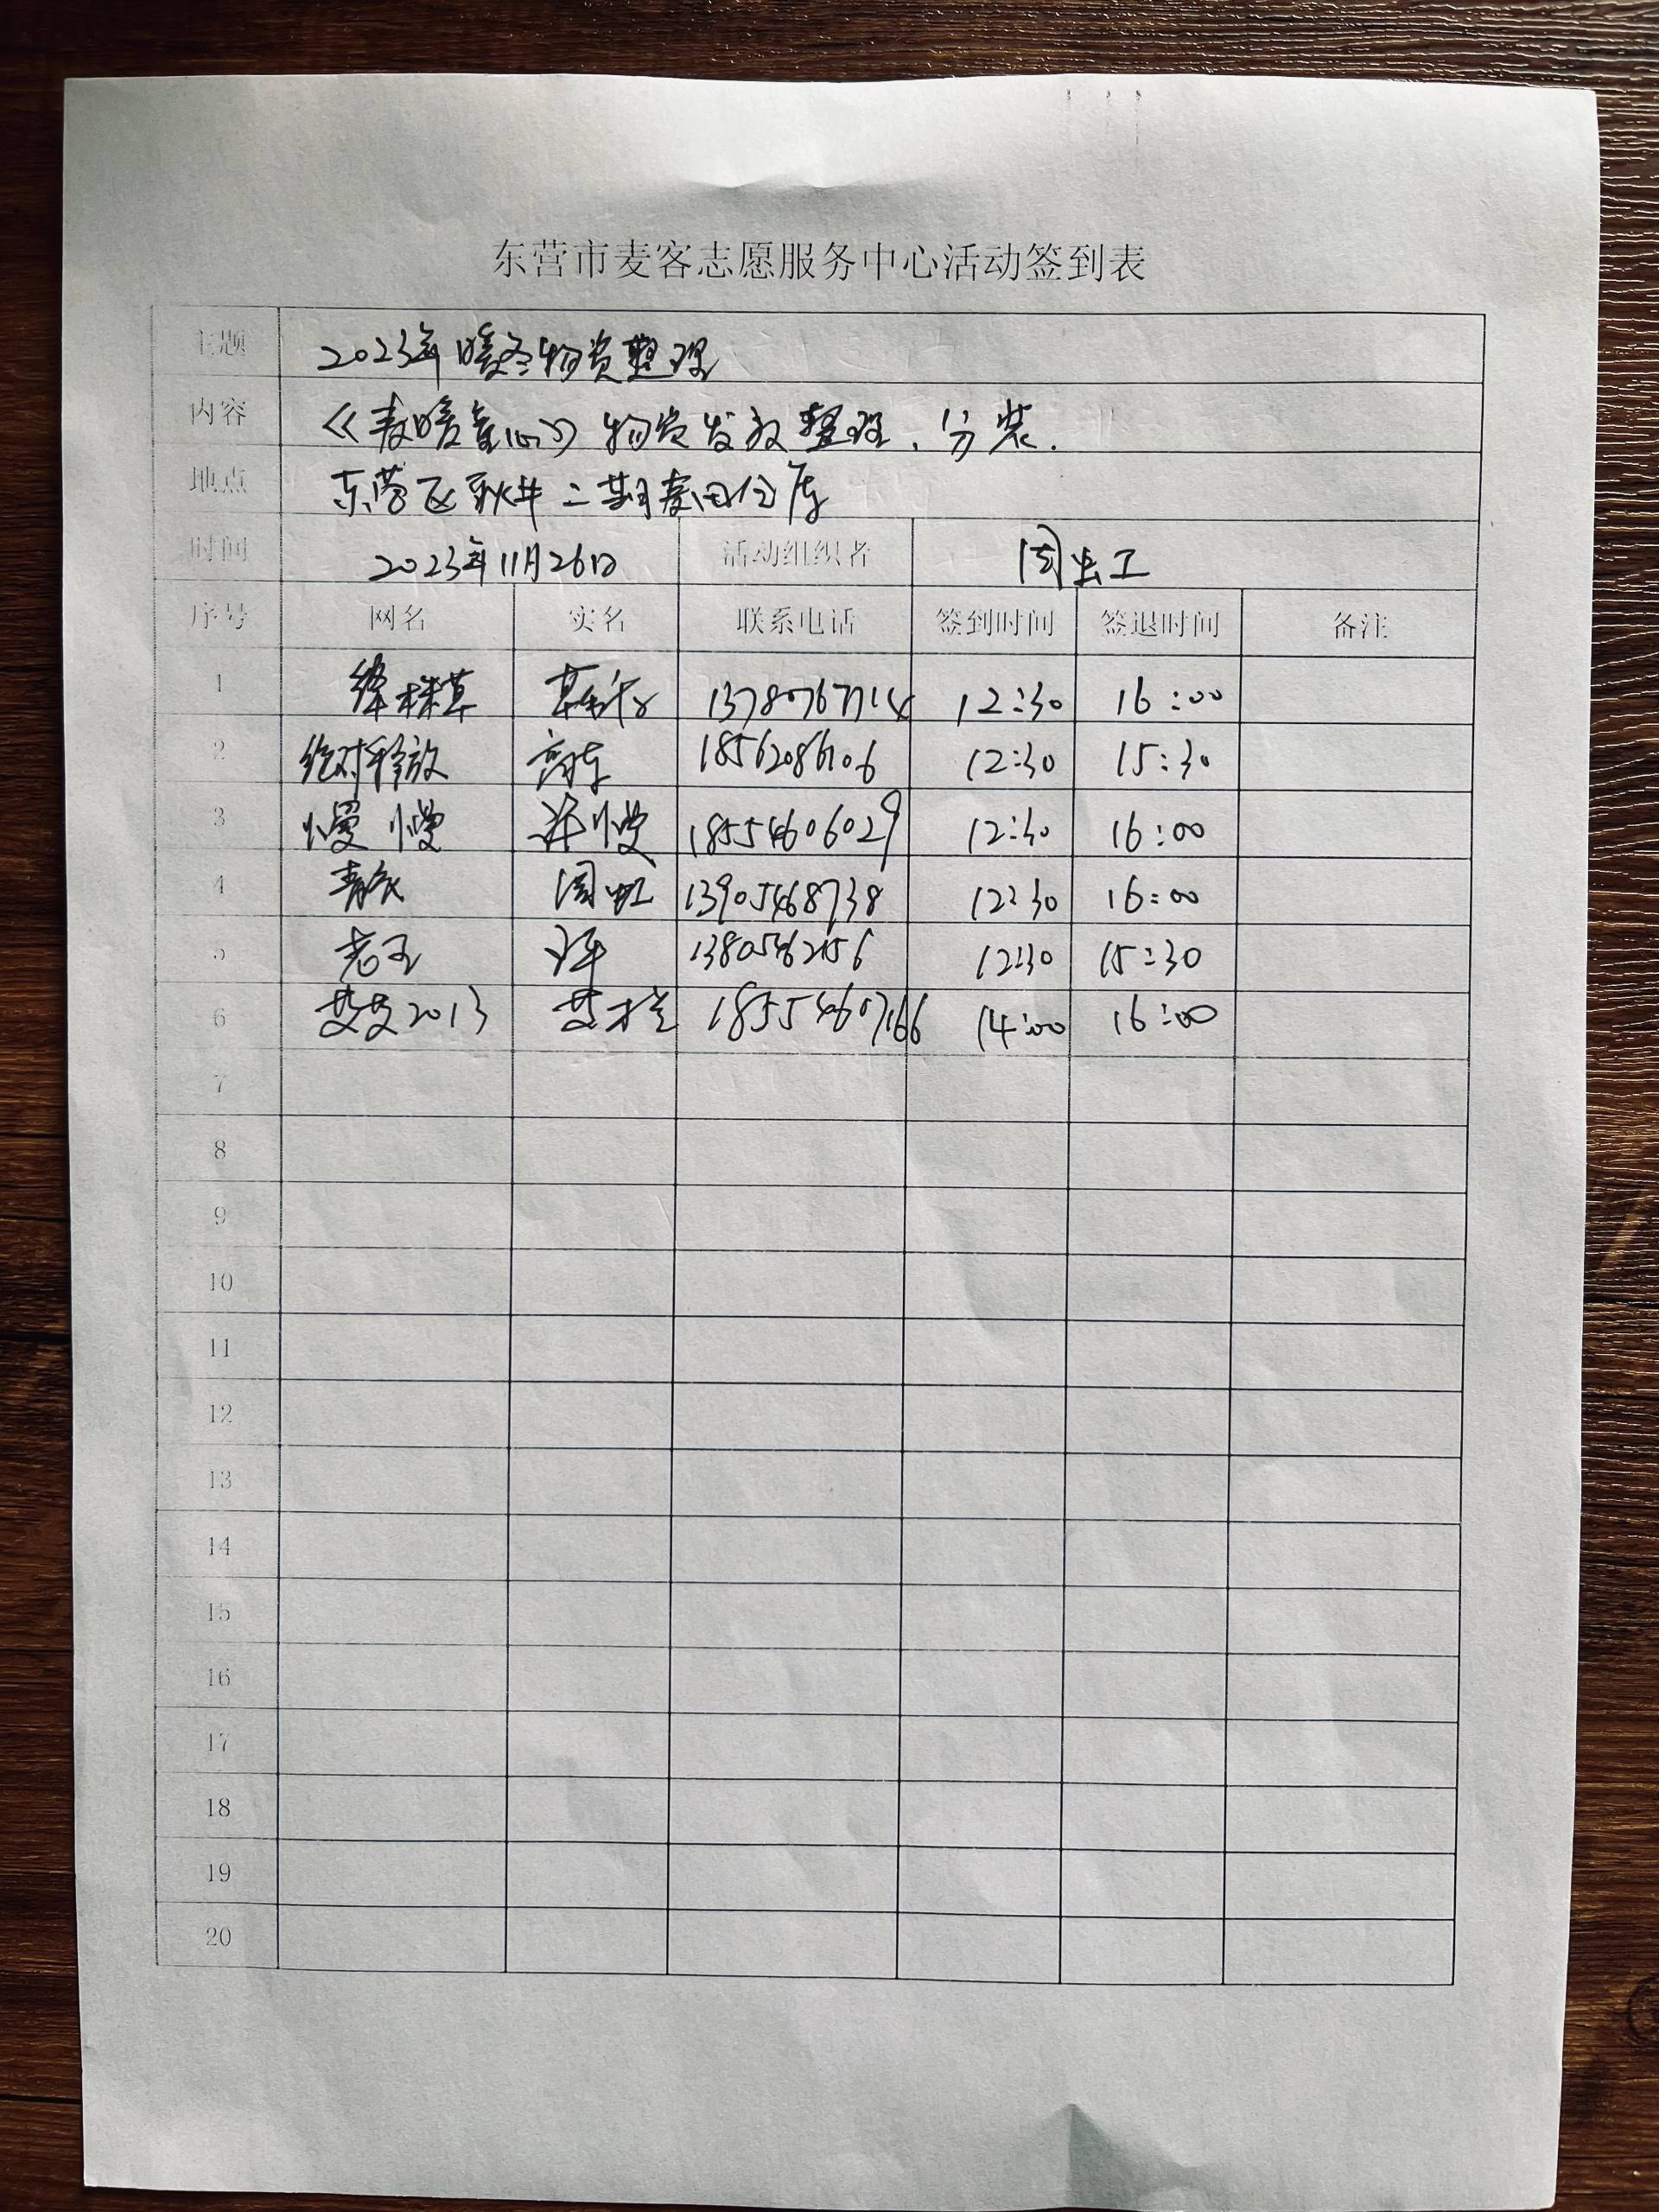 东营市麦客志愿服务中心活动签到表
主题 2023年暖冬物资整理
内容 《麦暖童心》物资发放整理、分装.
地点 东营区 二期麦田仓库
时间 2023年11月26日 活动组织者 周虹
序号 网名 实名 联系电话 签到时间 签退时间 备注
1 绛株草 12:30 16:00
2 绝对释放 高东 18562086106 12:30 15:30
3 慢慢 慢 18554606029 12:30 16:00
4 周虹 13905468738 12:30 16:00
5 老王 12:30 15:30
6 2013 18554607166 14:00 16:00
7
8
9
10
11
12
13
14
15
16
17
18
19
20